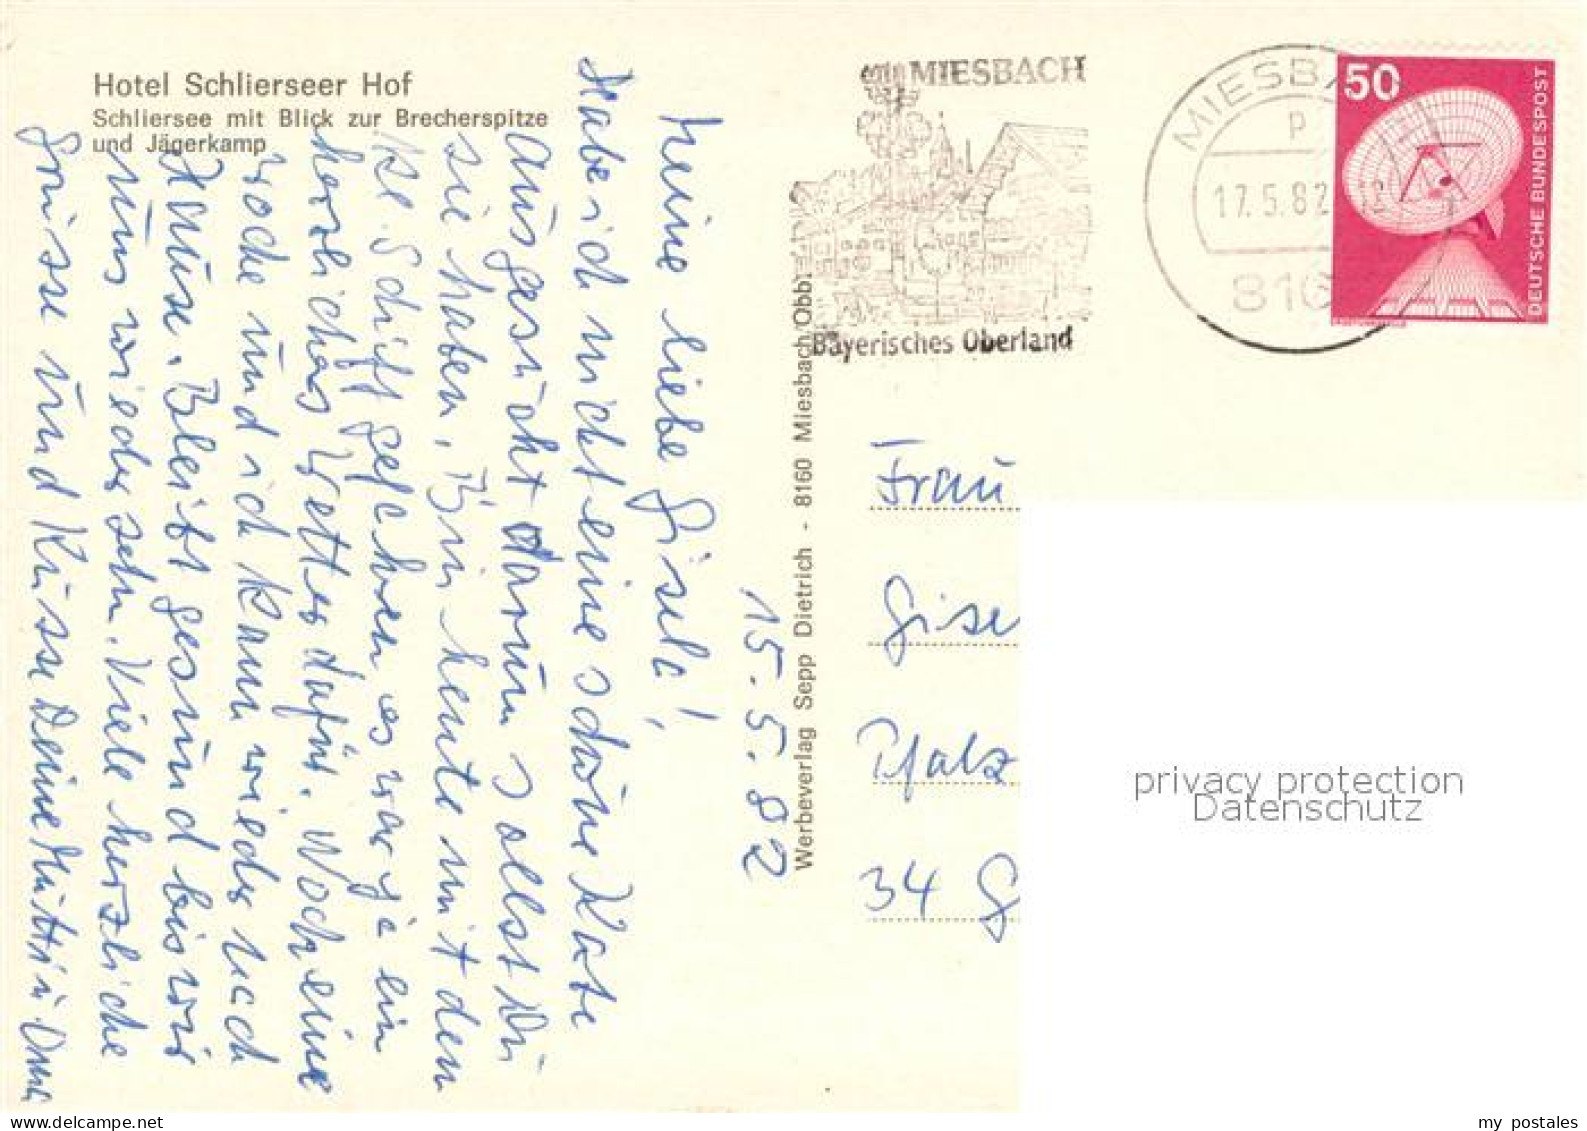 Hotel Schlierseer Hof
Schliersee mit Blick zur Brecherspitze
und Jägerkamp
15.5.82
Meine liebe Gisela!,
Habe ich nicht eine schöne Karte
ausgesucht darum sollst Du
sie haben, Bin heute mit dem
Schiff gefahren es war ja ein
herrliches Wetter dafür. Noch eine
Woche und ich kann wieder nach
Hause. Bleibt gesund bis wir
uns wieder sehn. Viele herzliche
Grüsse und Küsse Deine Mutti u
Werbeverlag Sepp Dietrich - 8160 Miesbach/Obb.
MIESBACH
Bayerisches Oberland
MIESBA
P
17.5.82
816
50
DEUTSCHE BUNDESPOST
Frau
Gise
Pfalz
34 G
privacy protection
Datenschutz
my postales